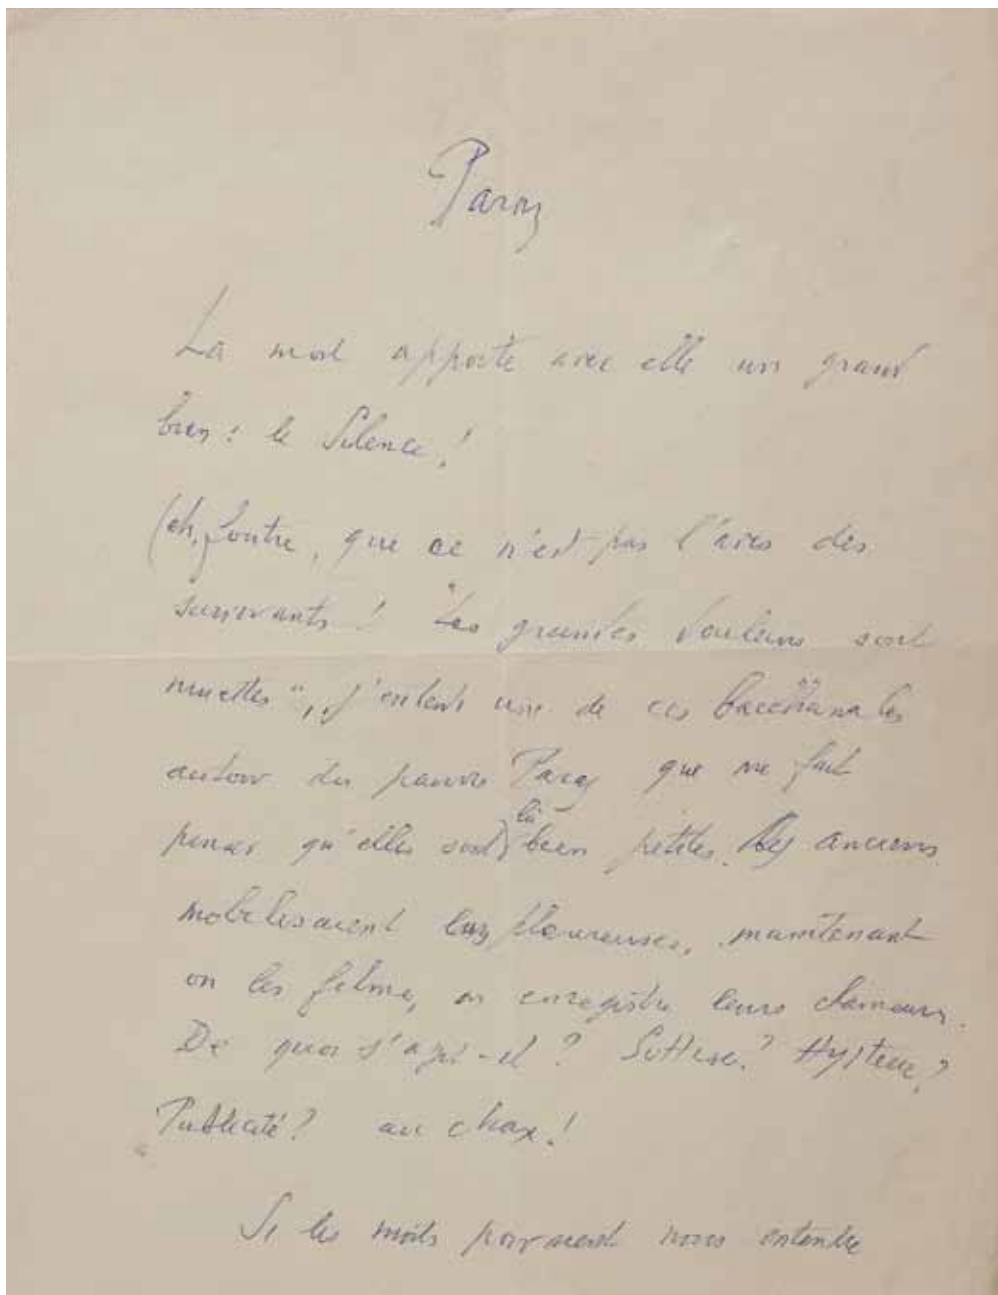 Paraz
La mort apporte avec elle un grand
bien : le Silence !
(eh, foutre, que ce n'est pas l'avis des
survivants ! "Les grandes douleurs sont
muettes", j'entends une de ces bacchanales
autour du pauvre Paraz que me fait
penser qu'elles sont là bien petites. Les anciens
mobilisaient les pleureuses, maintenant
on les filme, on enregistre leurs clameurs.
De quoi s'agit-il ? Sottise ? Hystérie ?
Publicité ? au choix !
Si les morts pouvaient nous entendre